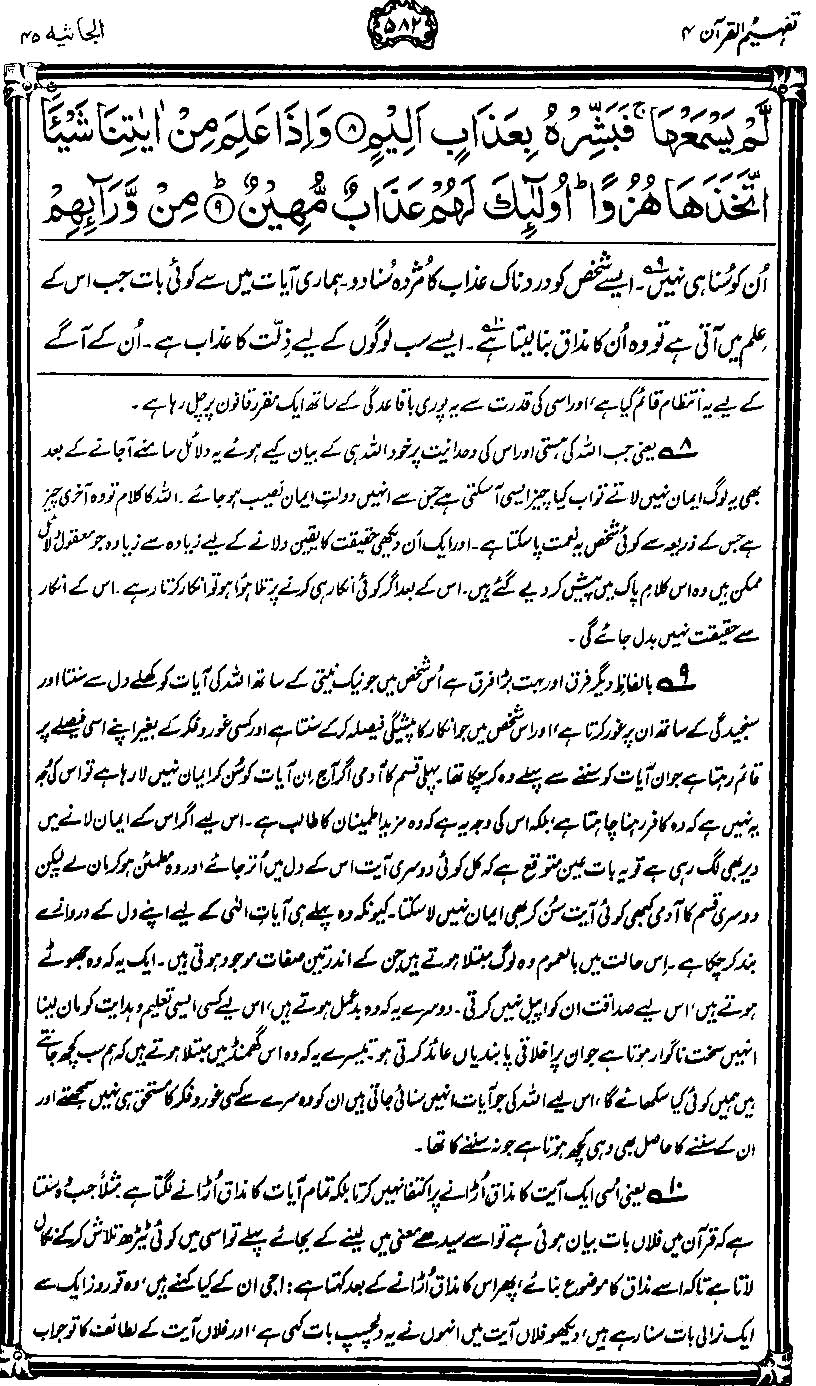 تفہیم القرآن ۴
۵۸۲
الجاثیہ ۴۵
لَّمْ يَسْمَعْهَا ۚ فَبَشِّرْهُ بِعَذَابٍ اَلِيْمٍ ۝۸ وَاِذَا عَلِمَ مِنْ اٰيٰتِنَا شَيْـًٔا
اتَّخَذَهَا هُزُوًا ؕ اُولٰٓئِكَ لَهُمْ عَذَابٌ مُّهِيْنٌ ۝۹ؕ مِنْ وَّرَآئِهِمْ
اُن کو سُنا ہی نہیں۹۔ ایسے شخص کو دردناک عذاب کا مُژدہ سُنا دو۔ ہماری آیات میں سے کوئی بات جب اس کے
عِلم میں آتی ہے تو وہ اُن کا مذاق بنا لیتا ہے۱۰۔ ایسے سب لوگوں کے لیے ذِلّت کا عذاب ہے۔ اُن کے آگے
کے لیے یہ انتظام قائم کیا ہے، اور اسی کی قدرت سے یہ پوری باقاعدگی کے ساتھ ایک مقرر قانون پر چل رہا ہے۔
۸ یعنی جب اللہ کی ہستی اور اس کی وحدانیت پر خود اللہ ہی کے بیان کیے ہوئے یہ دلائل سامنے آجانے کے بعد
بھی یہ لوگ ایمان نہیں لاتے تو اب کیا چیز ایسی آ سکتی ہے جس سے انہیں دولتِ ایمان نصیب ہو جائے۔ اللہ کا کلام تو وہ آخری چیز
ہے جس کے ذریعہ سے کوئی شخص یہ نعمت پا سکتا ہے۔ اور ایک اَن دیکھی حقیقت کا یقین دلانے کے لیے زیادہ سے زیادہ جو معقول دلائل
ممکن ہیں وہ اس کلامِ پاک میں پیش کر دیے گئے ہیں۔ اس کے بعد اگر کوئی انکار ہی کرنے پر تلا ہوا ہو تو انکار کرتا رہے۔ اس کے انکار
سے حقیقت نہیں بدل جائے گی۔
۹ بالفاظِ دیگر فرق اور بہت بڑا فرق ہے اُس شخص میں جو نیک نیتی کے ساتھ اللہ کی آیات کو کھلے دل سے سنتا اور
سنجیدگی کے ساتھ ان پر غور کرتا ہے، اور اس شخص میں جو انکار کا پیشگی فیصلہ کر کے سنتا ہے اور کسی غور و فکر کے بغیر اپنے اسی فیصلے پر
قائم رہتا ہے جو ان آیات کو سننے سے پہلے وہ کر چکا تھا۔ پہلی قسم کا آدمی اگر آج ان آیات کو سُن کر ایمان نہیں لا رہا ہے تو اس کی وجہ
یہ نہیں ہے کہ وہ کافر رہنا چاہتا ہے، بلکہ اس کی وجہ یہ ہے کہ وہ مزید اطمینان کا طالب ہے۔ اس لیے اگر اس کے ایمان لانے میں
دیر بھی لگ رہی ہے تو یہ بات عین متوقع ہے کہ کل کوئی دوسری آیت اس کے دل میں اُتر جائے اور وہ مطمئن ہو کر مان لے لیکن
دوسری قسم کا آدمی کبھی کوئی آیت سُن کر بھی ایمان نہیں لا سکتا۔ کیونکہ وہ پہلے ہی آیاتِ الٰہی کے لیے اپنے دل کے دروازے
بند کر چکا ہے۔ اِس حالت میں بالعموم وہ لوگ مبتلا ہوتے ہیں جن کے اندر تین صفات موجود ہوتی ہیں۔ ایک یہ کہ وہ جھوٹے
ہوتے ہیں، اس لیے صداقت ان کو اپیل نہیں کرتی۔ دوسرے یہ کہ وہ بدعمل ہوتے ہیں، اس لیے کسی ایسی تعلیم و ہدایت کو مان لینا
انہیں سخت ناگوار ہوتا ہے جو ان پر اخلاقی پابندیاں عائد کرتی ہو۔ تیسرے یہ کہ وہ اس گھمنڈ میں مبتلا ہوتے ہیں کہ ہم سب کچھ جانتے
ہیں ہمیں کوئی کیا سکھائے گا، اس لیے اللہ کی جو آیات انہیں سنائی جاتی ہیں ان کو وہ سرے سے کسی غور و فکر کا مستحق ہی نہیں سمجھتے اور
ان کے سننے کا حاصل بھی وہی کچھ ہوتا ہے جو نہ سننے کا تھا۔
۱۰ یعنی اُسی ایک آیت کا مذاق اُڑانے پر اکتفا نہیں کرتا بلکہ تمام آیات کا مذاق اُڑانے لگتا ہے مثلاً جب وہ سنتا
ہے کہ قرآن میں فلاں بات بیان ہوئی ہے تو اسے سیدھے معنی میں لینے کے بجائے پہلے تو اسی میں کوئی ٹیڑھ تلاش کر کے نکال
لاتا ہے تاکہ اسے مذاق کا موضوع بنائے، پھر اس کا مذاق اُڑانے کے بعد کہتا ہے: اجی ان کے کیا کہنے ہیں، وہ تو روز ایک سے
ایک نرالی بات سنا رہے ہیں، دیکھو فلاں آیت میں انہوں نے یہ دلچسپ بات کہی ہے، اور فلاں آیت کے لطائف کا تو جواب